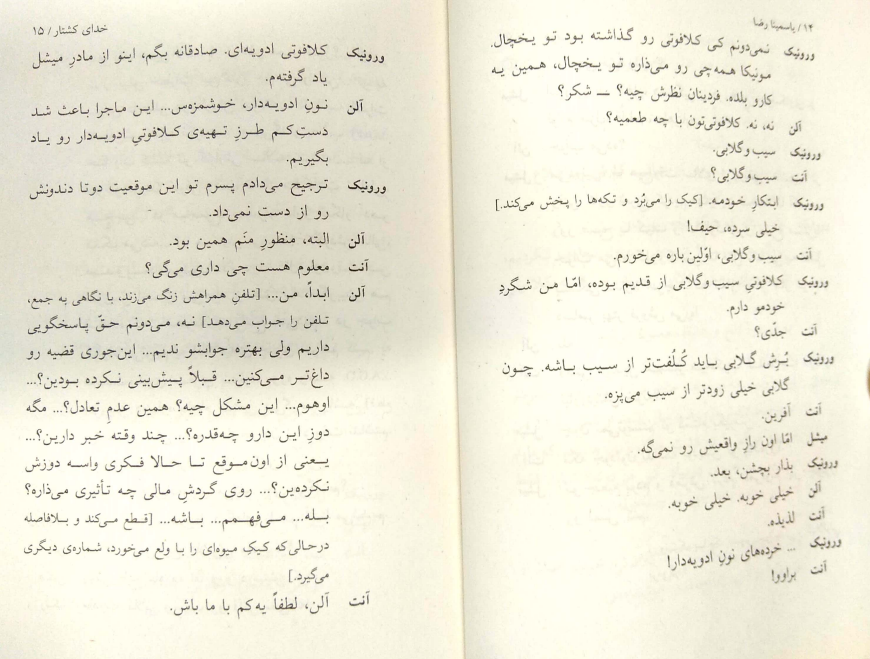 ۱۴ / یاسمینا رضا
ورونیک نمی‌دونم کی کلافوتی رو گذاشته بود تو یخچال.
مونیکا همه‌چی رو می‌ذاره تو یخچال، همین یه
کارو بلده. فردینان نظرش چیه؟ ــ شکر؟
آلن نه، نه. کلافوتی‌تون با چه طعمیه؟
ورونیک سیب وگلابی.
آنت سیب وگلابی؟
ورونیک ابتکارِ خودمه. [کیک را می‌بُرد و تکه‌ها را پخش می‌کند.]
خیلی سرده، حیف!
آنت سیب وگلابی، اوّلین باره می‌خورم.
ورونیک کلافوتیِ سیب وگلابی از قدیم بوده، امّا من شگردِ
خودمو دارم.
آنت جدّی؟
ورونیک بُرِش گلابی باید کُلُفت‌تر از سیب باشه. چون
گلابی خیلی زودتر از سیب می‌پزه.
آنت آفرین.
میشل امّا اون رازِ واقعیش رو نمی‌گه.
ورونیک بذار بچشن، بعد.
آلن خیلی خوبه. خیلی خوبه.
آنت لذیذه.
ورونیک ... خرده‌های نونِ ادویه‌دار!
آنت براوو!
خدای کشتار / ۱۵
ورونیک کلافوتی ادویه‌ای. صادقانه بگم، اینو از مادرِ میشل
یاد گرفته‌م.
آلن نونِ ادویه‌دار، خوشمزه‌س... این ماجرا باعث شد
دستِ‌کم طرزِ تهیه‌ی کلافوتیِ ادویه‌دار رو یاد
بگیریم.
ورونیک ترجیح می‌دادم پسرم تو این موقعیت دوتا دندونش
رو از دست نمی‌داد.
آلن البته، منظورِ منَم همین بود.
آنت معلوم هست چی داری می‌گی؟
آلن ابداً، من... [تلفنِ همراهش زنگ می‌زند، با نگاهی به جمع،
تلفن را جواب می‌دهد] نـه، می‌دونم حقّ پاسخگویی
داریم ولی بهتره جوابشو ندیم... این‌جوری قضیه رو
داغ‌تر می‌کنین... قبلاً پیش‌بینی نکرده بودین؟...
اوهوم... این مشکل چیه؟ همین عدمِ تعادل؟... مگه
دوزِ این دارو چه‌قدره؟... چند وقته خبر دارین؟...
یعنی از اون‌موقع تا حالا فکری واسه دوزش
نکرده‌ین؟... روی گردشِ مالی چه تأثیری می‌ذاره؟
بله... می‌فهمم... باشه... [قطع می‌کند و بلافاصله
درحالی‌که کیکِ میوه‌ای را با ولع می‌خورد، شماره‌ی دیگری
می‌گیرد.]
آنت آلن، لطفاً یه‌کم با ما باش.